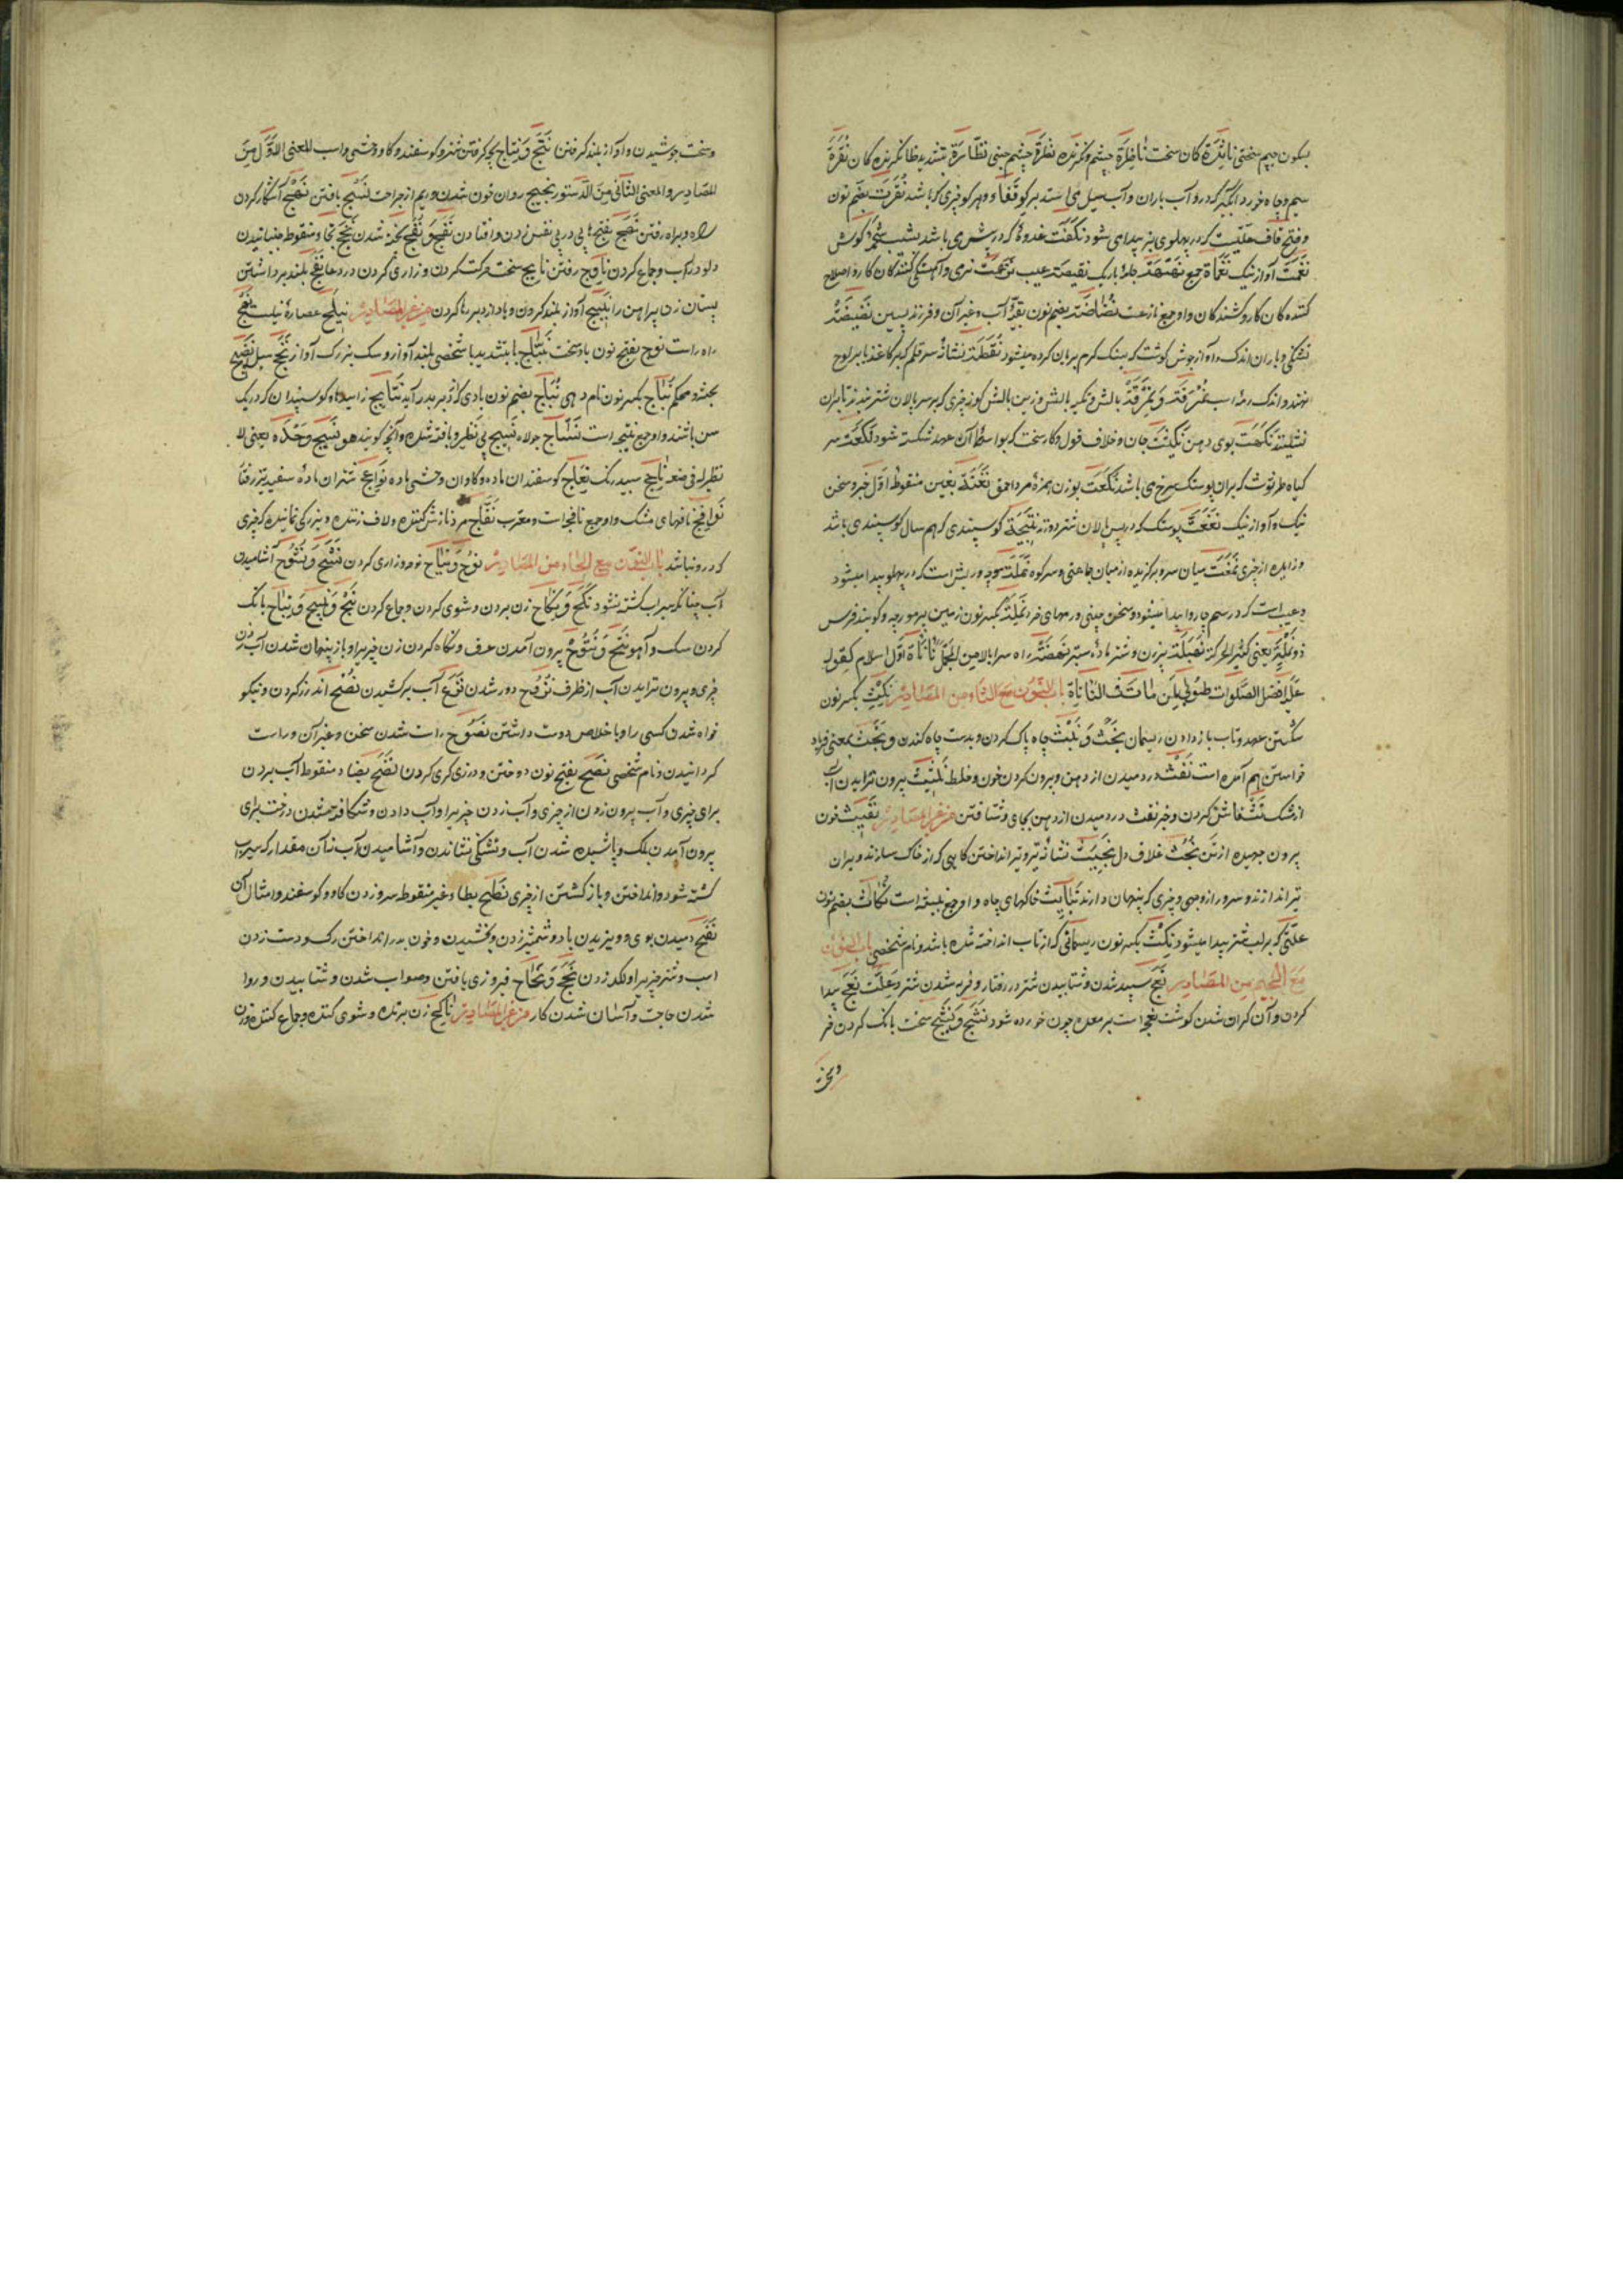 بسکون جیم سختی نایژه کان سخت ناظرة چشم و نگرنده نظرة چشم جنی نظارة بتشدید ظا نگرنده کان نقرة
سیم و چاه خورد آبگیر که درو آب باران و آب سیل می استد بر کو قفاء و هر کو چیزی که باشد نقرت بضم نون
و فتح قاف علتیست که در پهلوی بز پیدا می شود نکفت غدوۀ که در بش می باشد گوش
نغمت آواز نیک نغماة جمع جامۀ باریک نقیصة عیب نزعت نرمی و آهستگی کنندگان کار و اصلاح
کننده کان کار و کشنده کان واو جمع نازعت نضاضة بضم نون بقیۀ آب و غیر آن و فرزند پسین نضیضة
تشنگی و باران اندک و آواز جوش گوشت که بسنگ گرم بریان کرده میشود نقطة نشانۀ سر قلم که بر کاغذ یا بر لوح
نهند و اندک نمرقة و نمرقة بالش و تکیه بالش و زین بالش کوز چیزی که بر سر بالان شتر
نکهت بوی دهن نکیثت جان و خلاف قول و کار سخت که بواسطۀ آن عهد شکسته شود نکعت سر
کیاه طرثوث که بران پوستک سرخ می باشد نکعت بوزن همزۀ مرد احمق نغمة بغین منقوط اول خبر و سخن
نیک و آواز نیک نغغت پوستک که در پس پالان شتر دوتند نتیجة گوسپندی که هم سال گوسپندی باشد
و زاییده از چیزی نمغت میان سر و برگزیده از میان جماعتی و سر کوه نملة مورچه و ریش است که در پهلو پیدا میشود
و عیب است که در سم چاروا پیدا میشود و سخن چینی و مهرهای خرد نملة بکسر نون زمین پر مورچه و گویند فرس
ذو نملة یعنی کثیر الحرکة نهبلة پیر زن و شتر مادۀ ستبر نهضة راه سر بالا من الجمل نأنأة اول اسلام کقوله
علیه افضل الصلوات طوبی لمن مات فی النأنأة باب النون مع الثاء من المصادر نکث بکسر نون
شکستن عهد و تاب باز دادن ریسمان نجث و نبث چاه پاک کردن و بدست چاه کندن و نجث بمعنی فریاد
خواستن هم آمده است نفث در دمیدن از دهن و بیرون کردن خون و خلط نثیث بیرون ترابیدن آب
از مشک نث فاش کردن و خبر نفث در دمیدن از دهن بجای و شتافتن من غیر المصادر نفیث خون
بیرون جهیده از تن نجث غلاف دل نجیث نشانۀ تیر و تیر انداختن کاهی که از خاک سازند و بران
تیر اندازند و سرور از وجهی و چیزی که پنهان دارند نبایث خاکهای چاه و او جمع نبیثه است نکاث بضم نون
علتی که بر لب شتر پیدا میشود نکث بکسر نون ریسمانی که از تاب انداخته شده باشد و نام شخصی باب النون
مع الجیم من المصادر نعج سپید شدن و شتابیدن شتر در رفتار و فربه شدن شتر و علت نعج پیدا
کردن و آن گران شدن گوشت نعجه است بر معده چون خورده شود نشج و نشیج سخت بانگ کردن خر
و سخت
و سخت جوشیدن و آواز بلند گرفتن نتج و نتاج بچه گرفتن شتر و گوسفند و گاو وحشی و اسب المعنی الاول من
المصادر و المعنی الثانی من الدستور نجیج روان خون شدن و ریم از جراحت نسج بافتن نهج آشکار کردن
راه و براه رفتن نهج بفتح ها پی در پی نفس زدن و افتادن نضج و نضج پخته شدن نخج بخا و منقوط جنبانیدن
دلو در آب و جماع کردن نایج رفتن نایج سخت حرکت کردن و زاری کردن در دعا نفج بلند برداشتن
پستان زن پیراهن را نبیج آواز بلند کردن و باد از دبر رها کردن من غیر المصادر نیلج عصارۀ نیلست نهج
راه راست نوج بفتح نون باد سخت نباج با بتشدید با شخصی بلند آواز و سگ بزرگ آواز نج سیل نضیج
پخته و محکم نباج بکسر نون نام دهی نباج بضم نون بادی که از دبر بدر آید نتایج زاییدها و گوسپندان که در یک
سن باشند و او جمع نتیجه است نساج جولاه نسیج بی نظیر و بافته شده و آنچه گویند هو نسیج وحده یعنی لا
نظیر له فی ناعج سپید رنگ نعاج گوسفندان ماده و گاوان وحشی ماده نواعج شتران مادۀ سفید تیز رفتار
نوافج نافهای مشک و او جمع نافجه است و معرب نفاج مرد نازش کننده و لاف زننده و بزرگی نماینده که چیزی
که درو نباشد باب النون مع الحاء من المصادر نوح و نیاح نوحه و زاری کردن نشح و نشوح آشامیدن
آب چنانکه سیراب گشته نشود نکح و نکاح زن بردن و شوی کردن و جماع کردن نبح و نبیح و نباح بانگ
کردن سگ و آهو نتح و نتوح بیرون آمدن عرق و نگاه کردن زن چیزی را و باز پنهان شدن آب زدن
چیزی و بیرون ترابیدن آب از ظرف نزوح دور شدن نزح آب برکشیدن نصح اندرز کردن و نیکو
خواه شدن کسی را و باخلاص دوست داشتن نصوح راست شدن سخن و غیر آن و راست
گردانیدن و نام شخصی نصح بفتح نون دوختن و درزی گری کردن نضح بضاد منقوط آب بردن
برای چیزی و آب بیرون زدن از چیزی و آب زدن چیزی را و آب دادن و شکافته شدن درخت برای
بیرون آمدن برگ و پاشیده شدن آب و تشنگی نشاندن و آشامیدن آب نه آن مقدار که سیراب
گشته شود و انداختن و باز گشتن از چیزی نطح بطاء غیر منقوط سرو زدن گاو و گوسفند و امثال آن
نفح دمیدن بوی و وزیدن باد و شمشیر زدن و بخشیدن و خون بدر انداختن رگ و دست زدن
اسب و شتر چیزی را و لگد زدن نجح و نجاح فیروزی یافتن و صواب شدن و شتابیدن و روا
شدن حاجت و آسان شدن کار من غیر المصادر ناکح زن برنده و شوی کننده و جماع کننده و زن